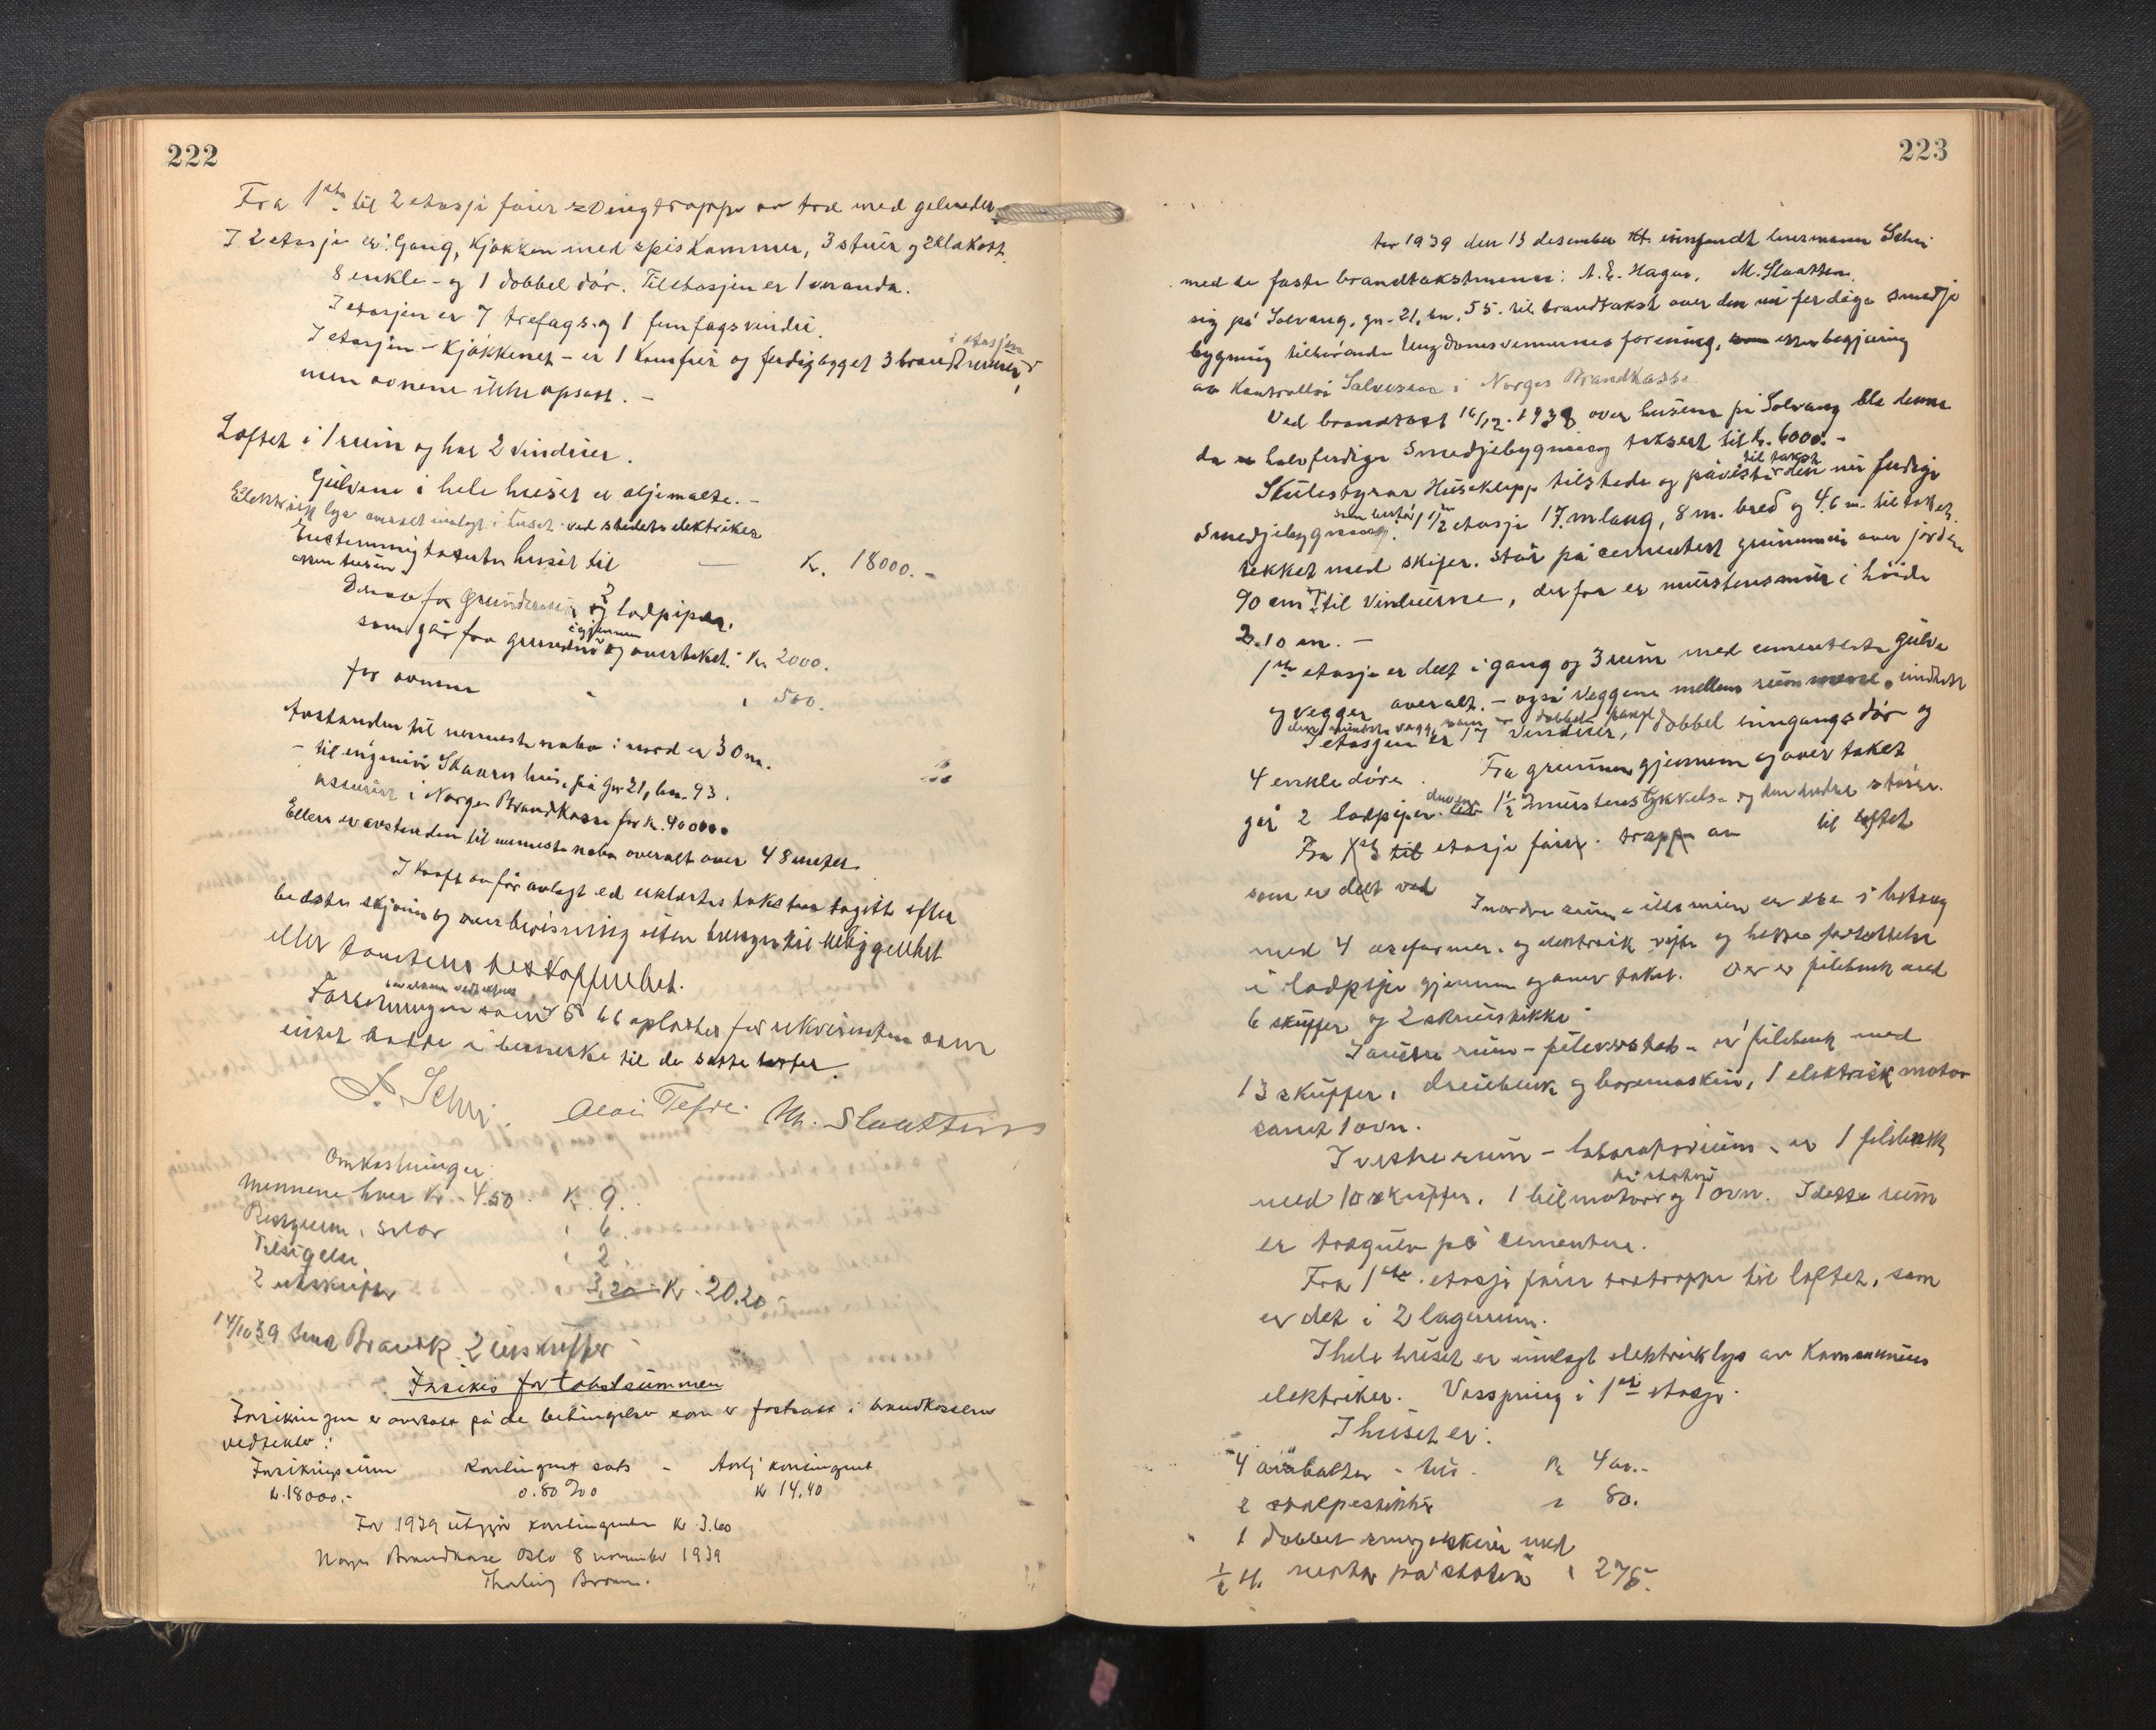 222
Fra 1ste til 2 etasje fører svingtrapp av tre med gelender.
I 2 etasje er: Gang, Kjøkken med spiskammer, 3 stuer og 2 klakott.
8 enkle - og 1 dobbel dør. Til etasjen er 1 veranda.
I etasjen er 7 trefags. og 1 femfagsvindu.
I etasjen - Kjøkkenet - er 1 Komfur og ferdigbygget 3 brandmurer i etasjen,
men ovnene ikke opsatt. -
Loftet i 1 rum og har 2 vinduer.
Gulvene i hele huset er oljemalte. -
Elektrisk lys overalt innlagt i huset ved stedets elektriker
Enstemmig taksertes huset til — Kr. 18000.-
Derav for grundmur og 2 lodpiper,
som går fra grunden igjennem og over taket. Kr 2000.
for ovnene " " 500.
Avstanden til nermeste nabo i nord er 30 m.
- til ingeniør Skaarn hus, på gn. 21, bn. 93.
assurert i Norges Brandkasse for kr. 40000.
Ellers er avstanden til nermeste nabo overalt over 48 meter.
I kraft av før avlagt ed erklærtes taksten tagitt efter
bedste skjønn og overbevisning uten hensyn til ubyggethet
eller tomtens beskaffenhet.
Forretningen som § 66 oplestes for rekvirenten som
intet hadde å bemerke til de satte takster.
L. Schei. Olai Tefre. M. Slaatten
Omkostninger:
Mennene hver Kr. 4.50 K. 9.
Bestyreren, salær " 6.
Tilsigelse " 2
2 utskrifter " 3.20 Kr. 20.20
14/10 39 Sendt Brandk. 2 utskrifter
Forsikres for takstsummen
Forsikringen er overtatt på de betingelser som er fastsatt i brandkassens
vedtekter:
Forsikringssum Kontingent sats - Årlig kontingent
kr. 18000.- 0.80 ‰ kr 14.40
For 1939 utgjør kontingenten kr 3.60
Norges Brandkasse Oslo 8 november 1939
223
År 1939 den 13 desember kl. innfandt lensmann Schei
med de faste brandtakstmenn: A. E. Hagen, M. Slaatten.
sig på Solvang, gn. 21, bn. 55. til brandtakst over den nu ferdige smedje
bygning tilhørende Ungdomsvennernes forening, efter begjæring
av Kontrollør Salvesen i Norges Brandkasse
Ved brandtakst 16/12. 1938 over husene på Solvang ble denne
da halvferdige Smedjebygning taksert til Kr. 6000. -
Skulestyrar Huseklepp tilstede og påviste til takst den nu ferdige
Smedjebygning. 1 1/2 etasje 17. m lang, 8 m. bred og 4.6 m. til taket.
tekket med skifer. Står på cementert grunnmur over jorden
90 cm til vinduerne, derfor er murstensmur i høide
2.10 m. -
1ste etasje er delt i gang og 3 rum med cementerte gulve
og vegger overalt. - også veggene mellem rummene, inndelt
I etasjen er 17 vinduer, 1 dobbel inngangsdør og
4 enkle døre. Fra grunnen gjennem og over taket
går 2 lodpiper. den ene 1 1/2 murstens tykkelse og den andre større.
Fra etasje fører trapp av til loftet
som er delt ved I nordre rum er esse i betong
med 4 esseformer. og elektrisk vifte og hette fortsettelse
i lodpipe gjennem og over taket. Der er filebenk med
6 skuffer og 2 skruestikke.
I østre rum - fileverksted - er filebenk med
13 skuffer, dreiebenk og boremaskin, 1 elektrisk motor
samt 1 ovn.
I vestre rum - laboratorium - er 1 filebenk
med 10 skuffer. 1 bilmotor på stativ og 1 ovn. I dette rum
er tregulv på cementen.
Fra 1ste etasje fører tretrappe til loftet, som
er delt i 2 lagerrum.
I hele huset er innlagt elektrisk lys av Kommunens
elektriker. Vasspring i 1ste etasje.
I huset er:
4 ambolter - kr. 400.-
2 stolpestikker " 80.
1 dobbel smergelskive med
1/2 H. motor på stativ " 275.